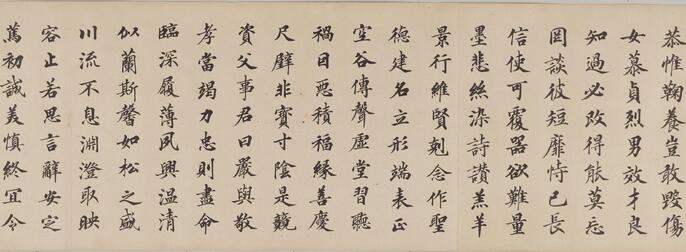 恭惟鞠養豈敢毀傷
女慕貞烈男效才良
知過必改得能莫忘
罔談彼短靡恃己長
信使可覆器欲難量
墨悲絲染詩讚羔羊
景行維賢剋念作聖
德建名立形端表正
空谷傳聲虛堂習聽
禍因惡積福緣善慶
尺璧非寶寸陰是競
資父事君曰嚴與敬
孝當竭力忠則盡命
臨深履薄夙興温清
似蘭斯馨如松之盛
川流不息淵澄取映
容止若思言辭安定
篤初誠美慎終宜令